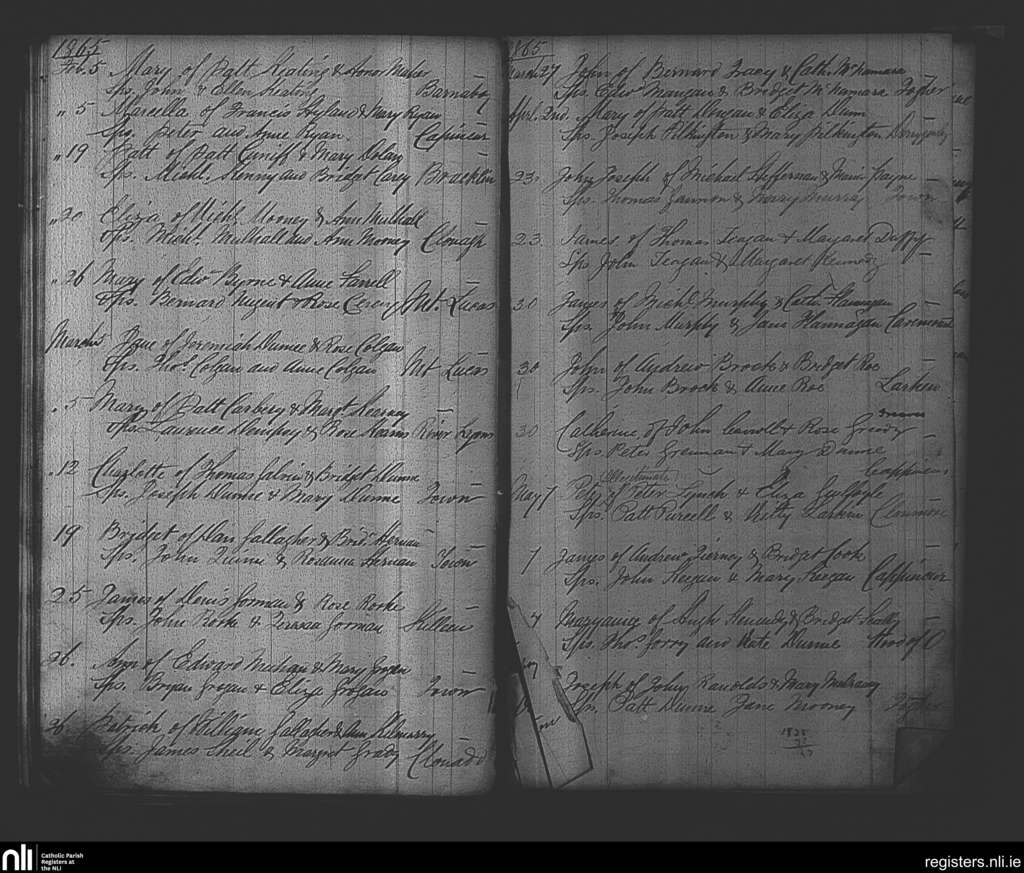 1865
Feb. 5 Mary of Patt Keating & Honor Maher
Sps. John & Ellen Keating Barnaboy
" 5 Marcella of Francis Hyland & Mary Ryan
Sps. Peter and Anne Ryan Cappincur
" 19 Patt of Patt Cuniff & Mary Dolan
Sps. Michl. Kenny and Bridget Carey Bracklin
" 20 Eliza of Michl. Mooney & Ann Mulhall
Sps. Michl. Mulhall and Ann Mooney
" 26 Mary of Edwd Byrne & Anne Farrell
Sps. Bernard Nugent & Rose Mt. Lucas
March 5 Jane of Jeremiah Dunne & Rose Colgan
Sps. Thos. Colgan and Anne Colgan Mt Lucas
" 5 Mary of Patt Carbery & Margt. Kearney
Sps. Laurence Dempsey & Rose River Lyons
" 12 Charlotte of Thomas Galvin & Bridget Dunne
Sps. Joseph Dunne & Mary Dunne Town
19 Bridget of Dan Gallagher & Bridt Hernan
Sps. John Quinn & Rosanna Hernan Town
25 James of Denis Gorman & Rose Rorke
Sps. John Rorke & Teressa Gorman Killeen
26. Ann of Edward Meehan & Mary Grogan
Sps. Bryan Grogan & Eliza Grogan Town
26 Patrick of William Gallagher & Ann Kilmurry
Sps. James Sheil & Margret Grady
1865
March 27 John of Bernard Tracy & Cath. McNamara
Sps. Edwd Mangan & Bridget McNamara
Apl. 2nd. Mary of Patt Dowan & Eliza Dunn
Sps. Joseph Pilkington & Mary Pilkington
23. John Joseph of Michael Heffernan & Maria Payne
Sps. Thomas Gannon & Mary Murray Town
23. James of Thomas Teagan & Margaret Duffy
Sps John Teagan & Margaret Kennedy
30 James of Michl Murphy & Cathn Flannagan
Sps. John Murphy & Jane Flannagan
30 John of Andrew Brock & Bridget Roe
Sps. John Brock & Anne Roe Larkin
30 Catherine of John Carroll & Rose Greedy
Sps. Peter Grennan & Mary Dunne
Cappincur
(Illegitimate)
May 7 Peter of Peter Lynch & Eliza Guilfoyle
Sps. Patt Purcell & Kitty Larkin
7 James of Andrew Tierney & Bridget Cook
Sps. John Keegan & Mary Keegan Cappincur
7 Maryanne of Hugh Kennedy & Bridget Scally
Sps. Thos. Gorry and Kate Dunne Wood of O
Joseph of John Ranolds & Mary Mulrany
Sps. Patt Dunne Jane Mooney
nli
Catholic Parish
Registers at
the NLI
registers.nli.ie